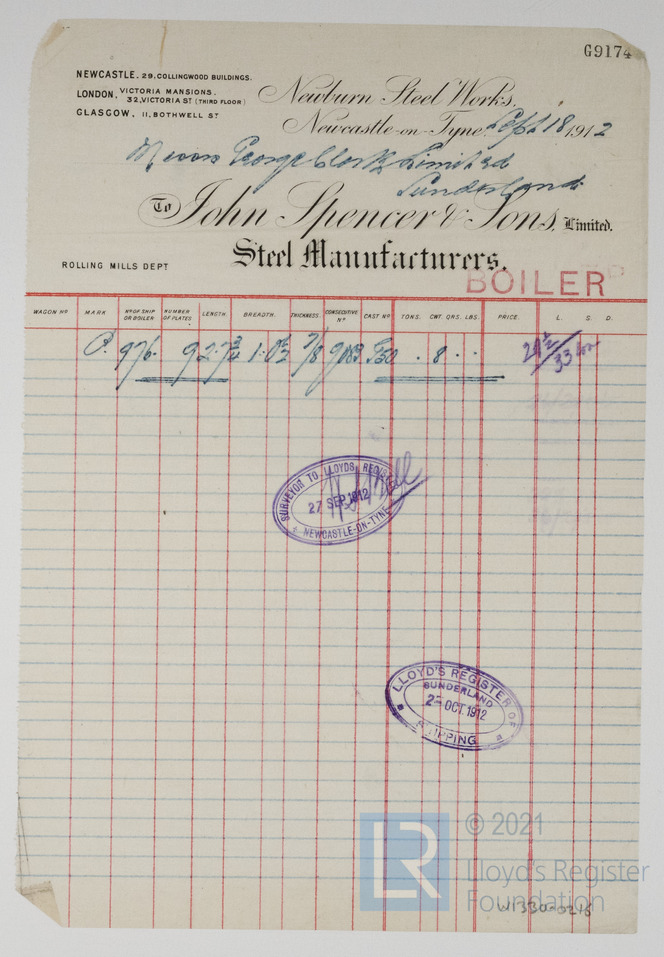 G9174
NEWCASTLE. 29, COLLINGWOOD BUILDINGS.
LONDON, VICTORIA MANSIONS.
32, VICTORIA ST (THIRD FLOOR)
GLASGOW, 11, BOTHWELL ST
Newburn Steel Works,
Newcastle-on-Tyne, Sept 18 1912
Messrs George Clark Limited
Sunderland
To John Spencer & Sons, Limited.
Steel Manufacturers.
ROLLING MILLS DEPT
BOILER
WAGON No MARK No OF SHIP OR BOILER NUMBER OF PLATES LENGTH BREADTH. THICKNESS. CONSECUTIVE No CAST No TONS. CWT. QRS. LBS. PRICE. L. S. D.
976. 9 2.7¾ 7/8 9083 . 8 . .
SURVEYOR TO LLOYDS REGISTER
27 SEP 1912
NEWCASTLE-ON-TYNE
LLOYD'S REGISTER OF
SUNDERLAND
2 - OCT. 1912
SHIPPING
LR
© 2021
Lloyd's Register
Foundation
W1330-0216